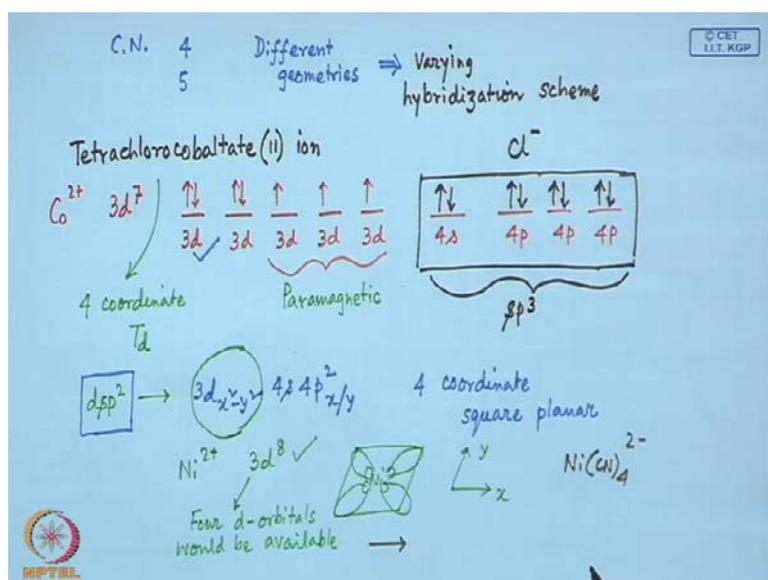 C.N. 4 Different geometries ⇒ Varying hybridization scheme
5
© CET
I.I.T. KGP
Tetrachlorocobaltate(ii) ion
Cl⁻
Co²⁺ 3d⁷ ↑↓ ↑↓ ↑ ↑ ↑
3d 3d 3d 3d 3d
↑↓ ↑↓ ↑↓ ↑↓
4s 4p 4p 4p
4 coordinate
Td
Paramagnetic
sp³
dsp² → 3dx²-y² 4s 4p²x/y
4 coordinate
square planar
Ni²⁺ 3d⁸ ✓
Ni
y
x
Ni(CN)₄²⁻
Four d-orbitals
would be available →
NPTEL